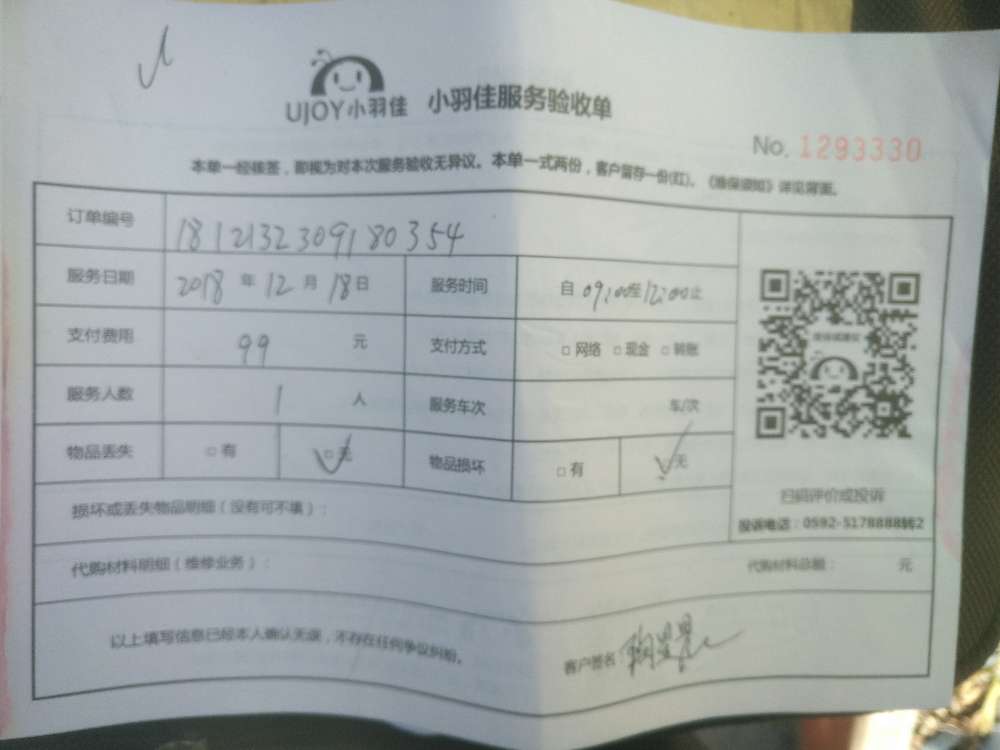 UJOY小羽佳 小羽佳服务验收单
No. 1293330
本单一经核签，即视为对本次服务验收无异议。本单一式两份，客户留存一份(红)。《维保须知》详见背面。
订单编号 181213230918​0354
服务日期 2018 年 12 月 18 日 服务时间 自 09:00 至 12:00 止
支付费用 99 元 支付方式 □ 网络 □ 现金 □ 转账
服务人数 1 人 服务车次 车/次
物品丢失 □ 有 □ 无 物品损坏 □ 有 □ 无
扫码评价或投诉
投诉电话：0592-5178888转2
损坏或丢失物品明细（没有可不填）：
代购材料明细（维修业务）： 代购材料总额： 元
以上填写信息已经本人确认无误，不存在任何争议纠纷。 客户签名：